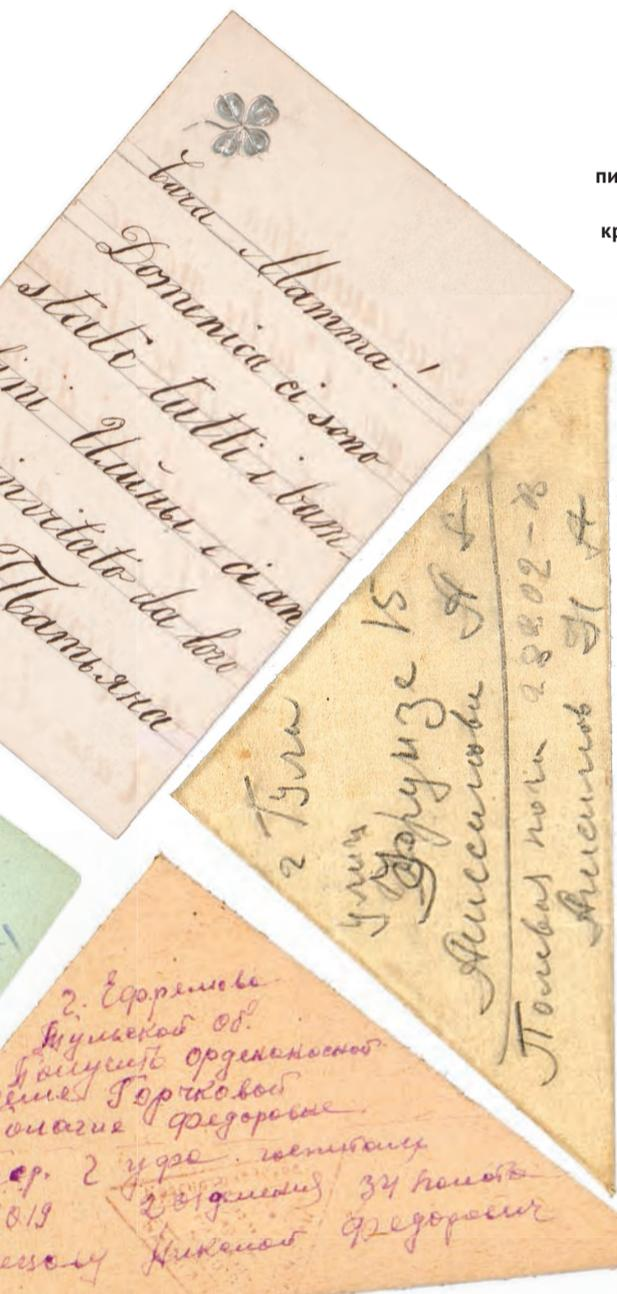 Cara Mamma!
Domenica ci sono
stato tutti i bam-
bini Ильины e ci an
invitato da loro
Татьяна
пи
кр
г Тула
улиц
Фрунзе 15
Анисимови А А
Полевая почта 28202-В
Анисимов Н А
г. Ефремово
Тульской об.
Получить орденоносной
Горчковой
федоровне
гр. г уфа. госпиталь
019 2 отделения 34 палата
Николай Федорович